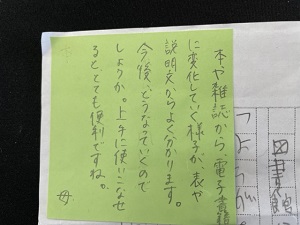 本や雑誌から、電子書籍
に変化していく様子が、表や
説明文からよく分かります。
今後、どうなっていくので
しょうか。上手に使いこなせ
るととても便利ですね。
図書館